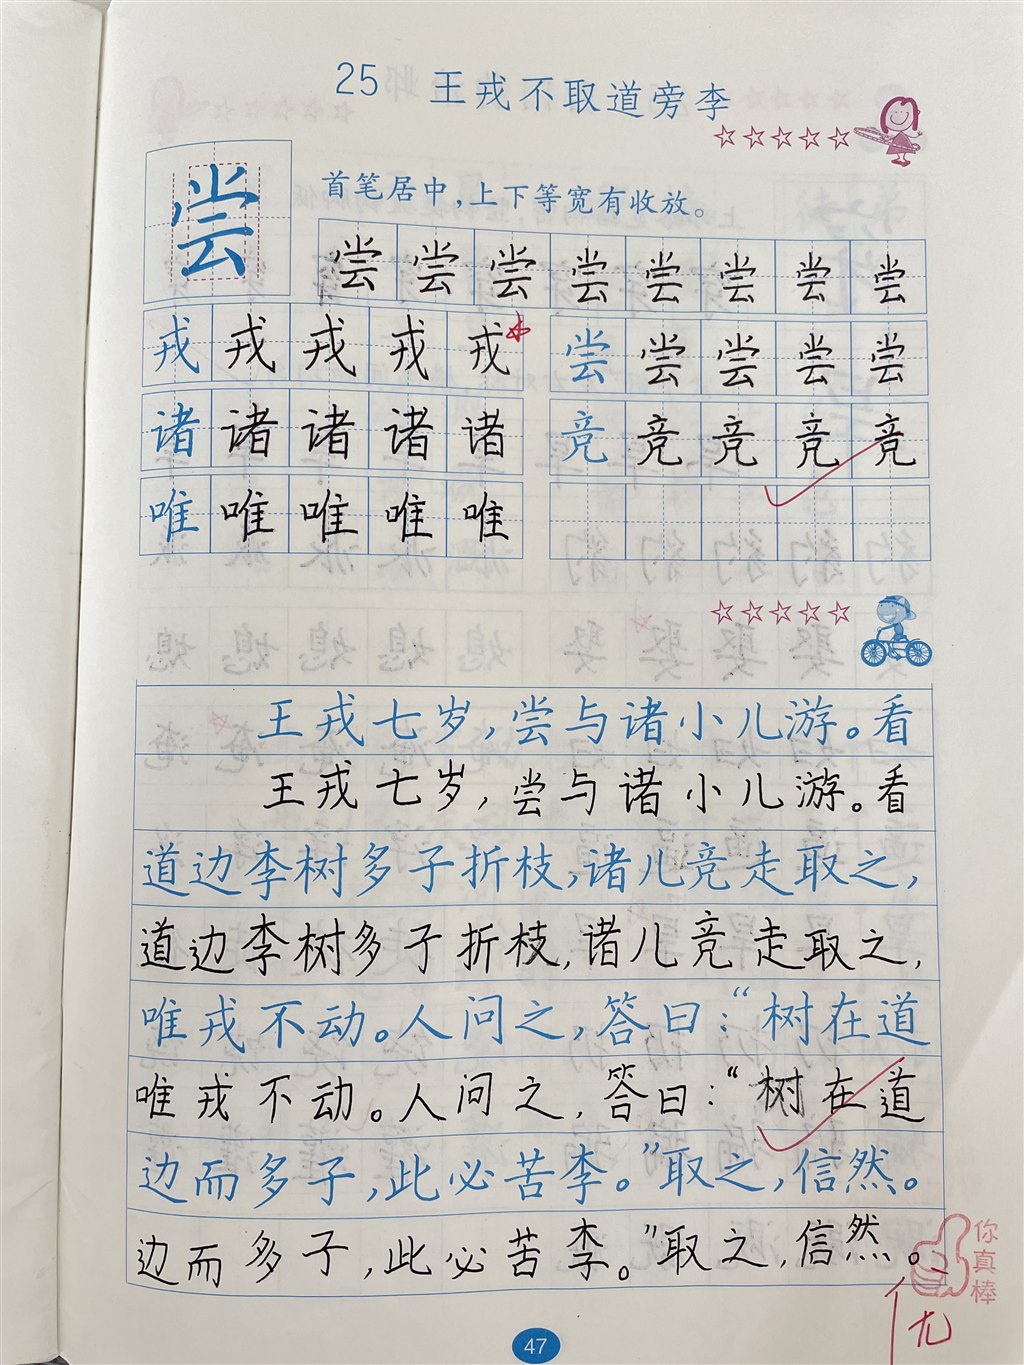 25 王戎不取道旁李
尝
首笔居中,上下等宽有收放。
尝尝尝尝尝尝尝尝
戎戎戎戎戎
尝尝尝尝尝
诸诸诸诸诸
竞竞竞竞竞
唯唯唯唯唯
王戎七岁,尝与诸小儿游。看
王戎七岁,尝与诸小儿游。看
道边李树多子折枝,诸儿竞走取之,
道边李树多子折枝,诸儿竞走取之,
唯戎不动。人问之,答曰:“树在道
唯戎不动。人问之,答曰:“树在道
边而多子,此必苦李。”取之,信然。
边而多子,此必苦李。”取之,信然。
你真棒
优
47